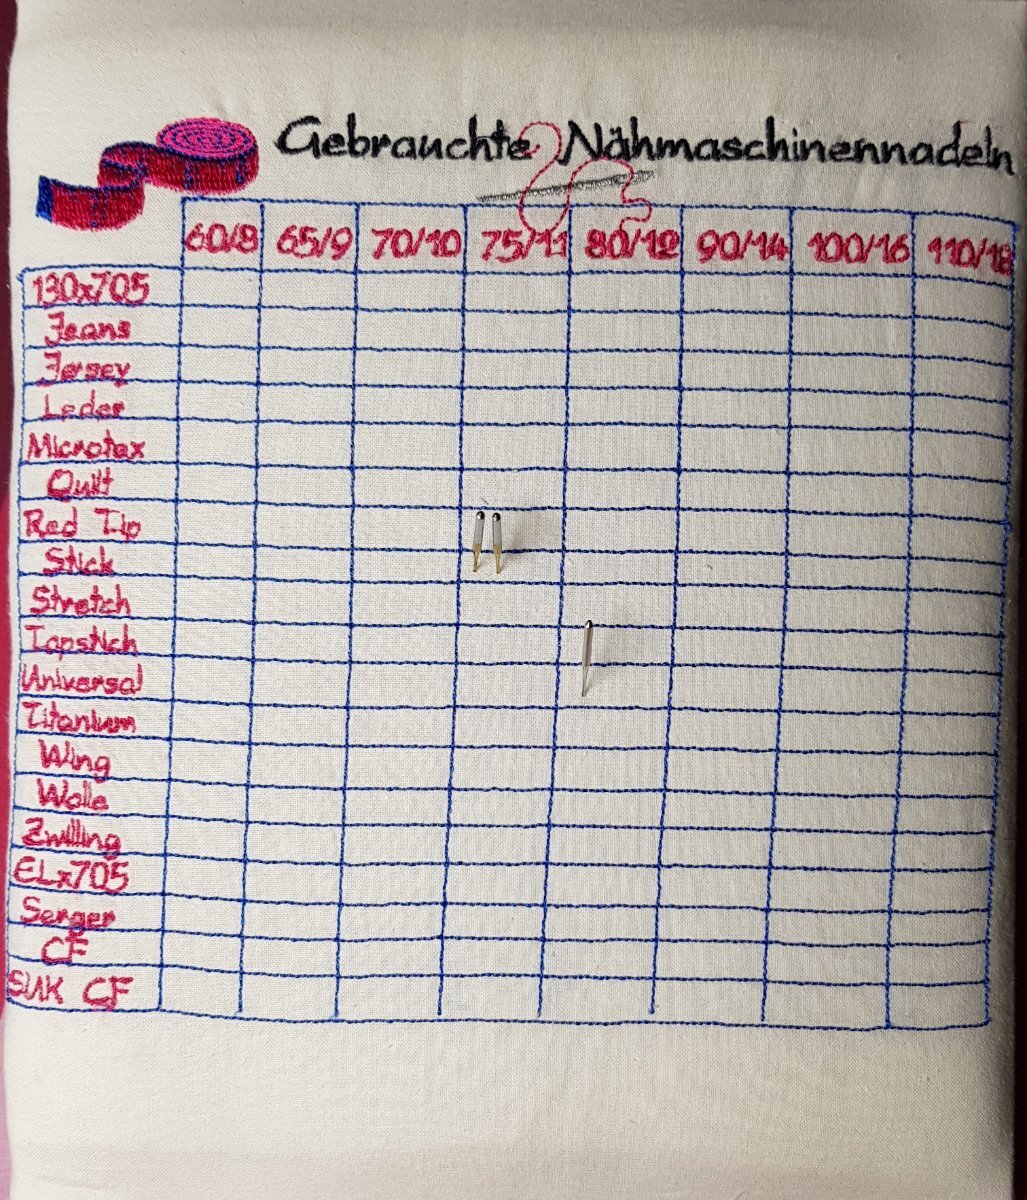 Gebrauchte Nähmaschinennadeln
60/8 65/9 70/10 75/11 80/12 90/14 100/16 110/18
130x705
Jeans
Jersey
Leder
Microtex
Quilt
Red Tip
Stick
Stretch
Topstich
Universal
Titanium
Wing
Wolle
Zwilling
ELx705
Serger
CF
SUK CF